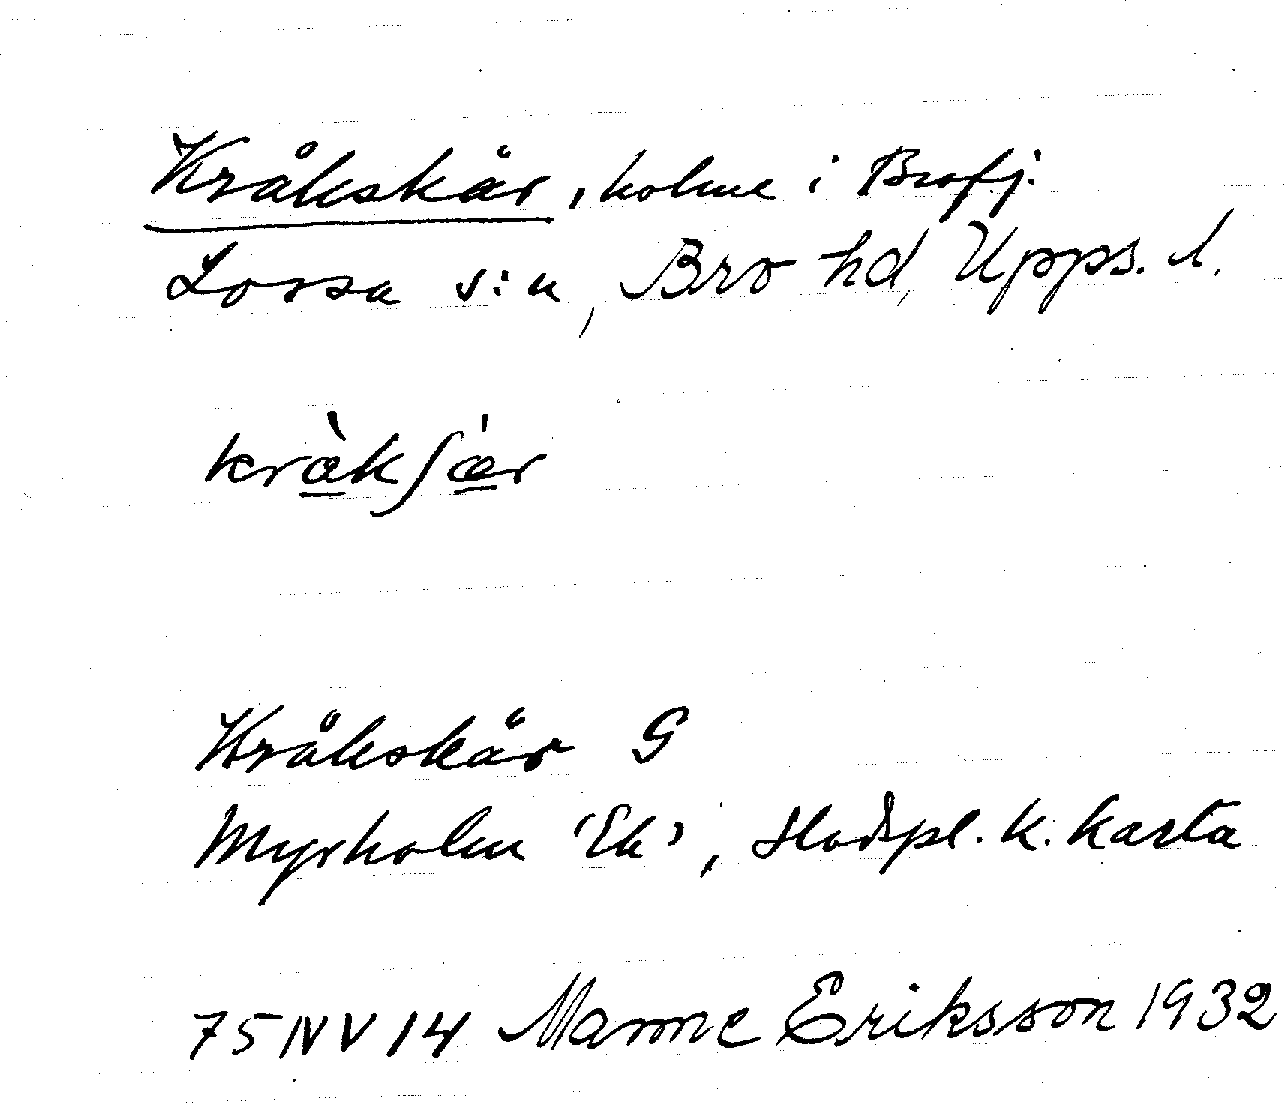 Kråkskär, holme i Brofj.
Lossa s:n, Bro hd, Upps. l.
kràkʃǽr
Kråkskär G
Myrholm 'Ek', Hodspl. k. karta
75 NV 14 Manne Eriksson 1932